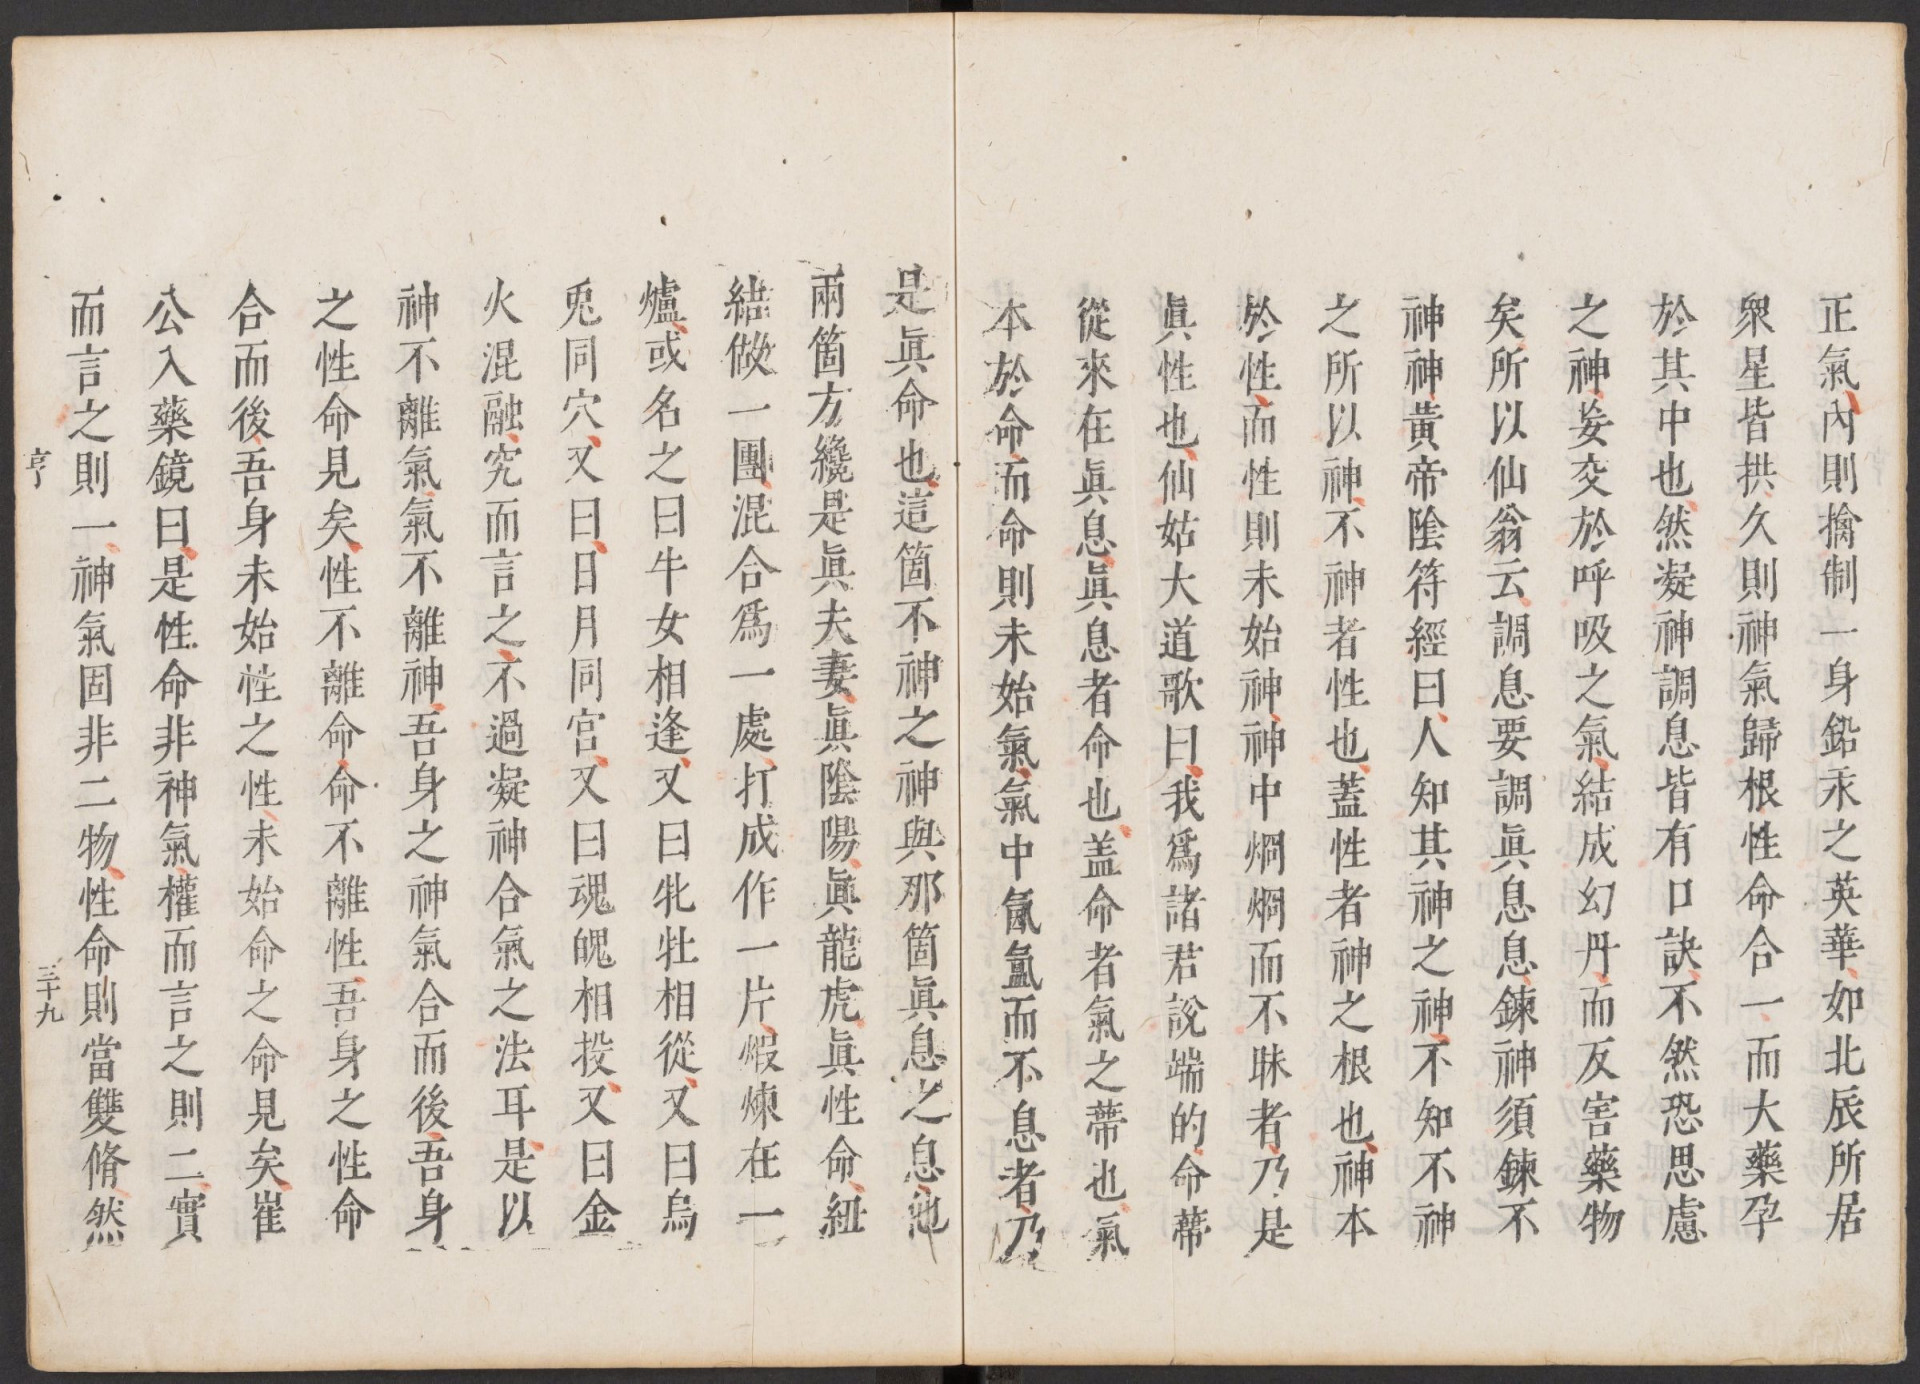 正氣、內則擒制一身鉛汞之英華、如北辰所居
衆星皆拱久則神氣歸根性命合一、而大藥孕
於其中也、然凝神調息皆有口訣、不然恐思慮
之神、妄交於呼吸之氣、結成幻丹、而反害藥物
矣所以仙翁云、調息要調眞息息、鍊神須鍊不
神神、黃帝陰符經曰、人知其神之神、不知不神
之所以神、不神者性也、蓋性者神之根也、神本
於性、而性則未始神、神中烱烱而不昧者、乃是
眞性也、仙姑大道歌曰、我爲諸君說端的、命蒂
從來在眞息、眞息者命也、盖命者氣之蒂也、氣
本於命、而命則未始氣、氣中氤氳而不息者、乃
是眞命也、這箇不神之神與那箇眞息之息、他
兩箇方纔是眞夫妻、眞陰陽、眞龍虎、眞性命、紐
結做一團、混合爲一處、打成作一片、煆煉在一
爐、或名之曰牛女相逢、又曰牝牡相從、又曰烏
兎同穴、又曰、日月同宮、又曰魂魄相投、又曰金
火混融、究而言之、不過凝神合氣之法耳、是以
神不離氣、氣不離神、吾身之神氣合而後、吾身
之性命見矣、性不離命、命不離性、吾身之性命
合而後、吾身未始性之性、未始命之命見矣、崔
公入藥鏡曰、是性命非神氣、權而言之則二、實
而言之則一、神氣固非二物、性命則當雙脩、然
亨
三十九